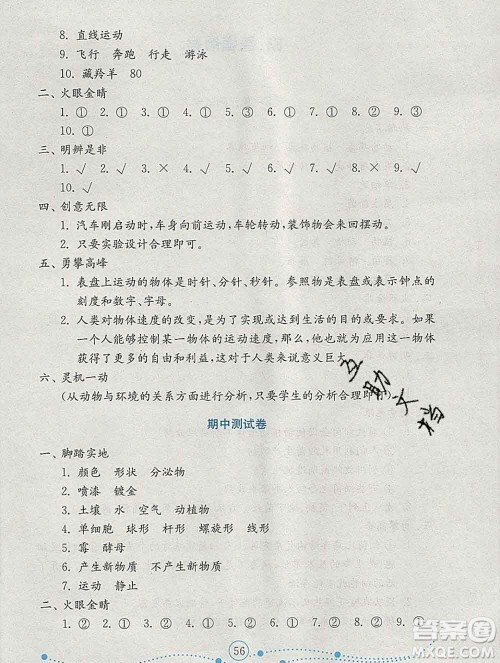 8. 直线运动
9. 飞行 奔跑 行走 游泳
10. 藏羚羊 80
二、火眼金睛
1. ① 2. ① 3. ① 4. ① 5. ③ 6. ① 7. ① 8. ② 9. ③
10. ①
三、明辨是非
1. √ 2. √ 3. × 4. √ 5. √ 6. √ 7. √ 8. × 9. √
10. √
四、创意无限
1. 汽车刚启动时，车身向前运动，车轮转动，装饰物会来回摆动。
2. 只要实验设计合理即可。
五、勇攀高峰
1. 表盘上运动的物体是时针、分针、秒针。参照物是表盘或表示钟点的
刻度和数字、字母。
2. 人类对物体速度的改变，是为了实现或达到生活的目的或要求。如果
一个人能够控制某一物体的运动速度，那么，他就能应用这一物体
获得了更多的自由和利益，这对于人类来说意义巨大。
六、灵机一动
（从动物与环境的关系方面进行分析，只要学生的分析合理即可）
期中测试卷
一、脚踏实地
1. 颜色 形状 分泌物
2. 喷漆 镀金
3. 土壤 水 空气 动植物
4. 单细胞 球形 杆形 螺旋形 线形
5. 霉 酵母
6. 产生新物质 不产生新物质
7. 运动 静止
二、火眼金睛
1. ② 2. ① 3. ② 4. ① 5. ① 6. ① 7. ② 8. ① 9. ①
56
互助文档
答案圈
MXQE.COM